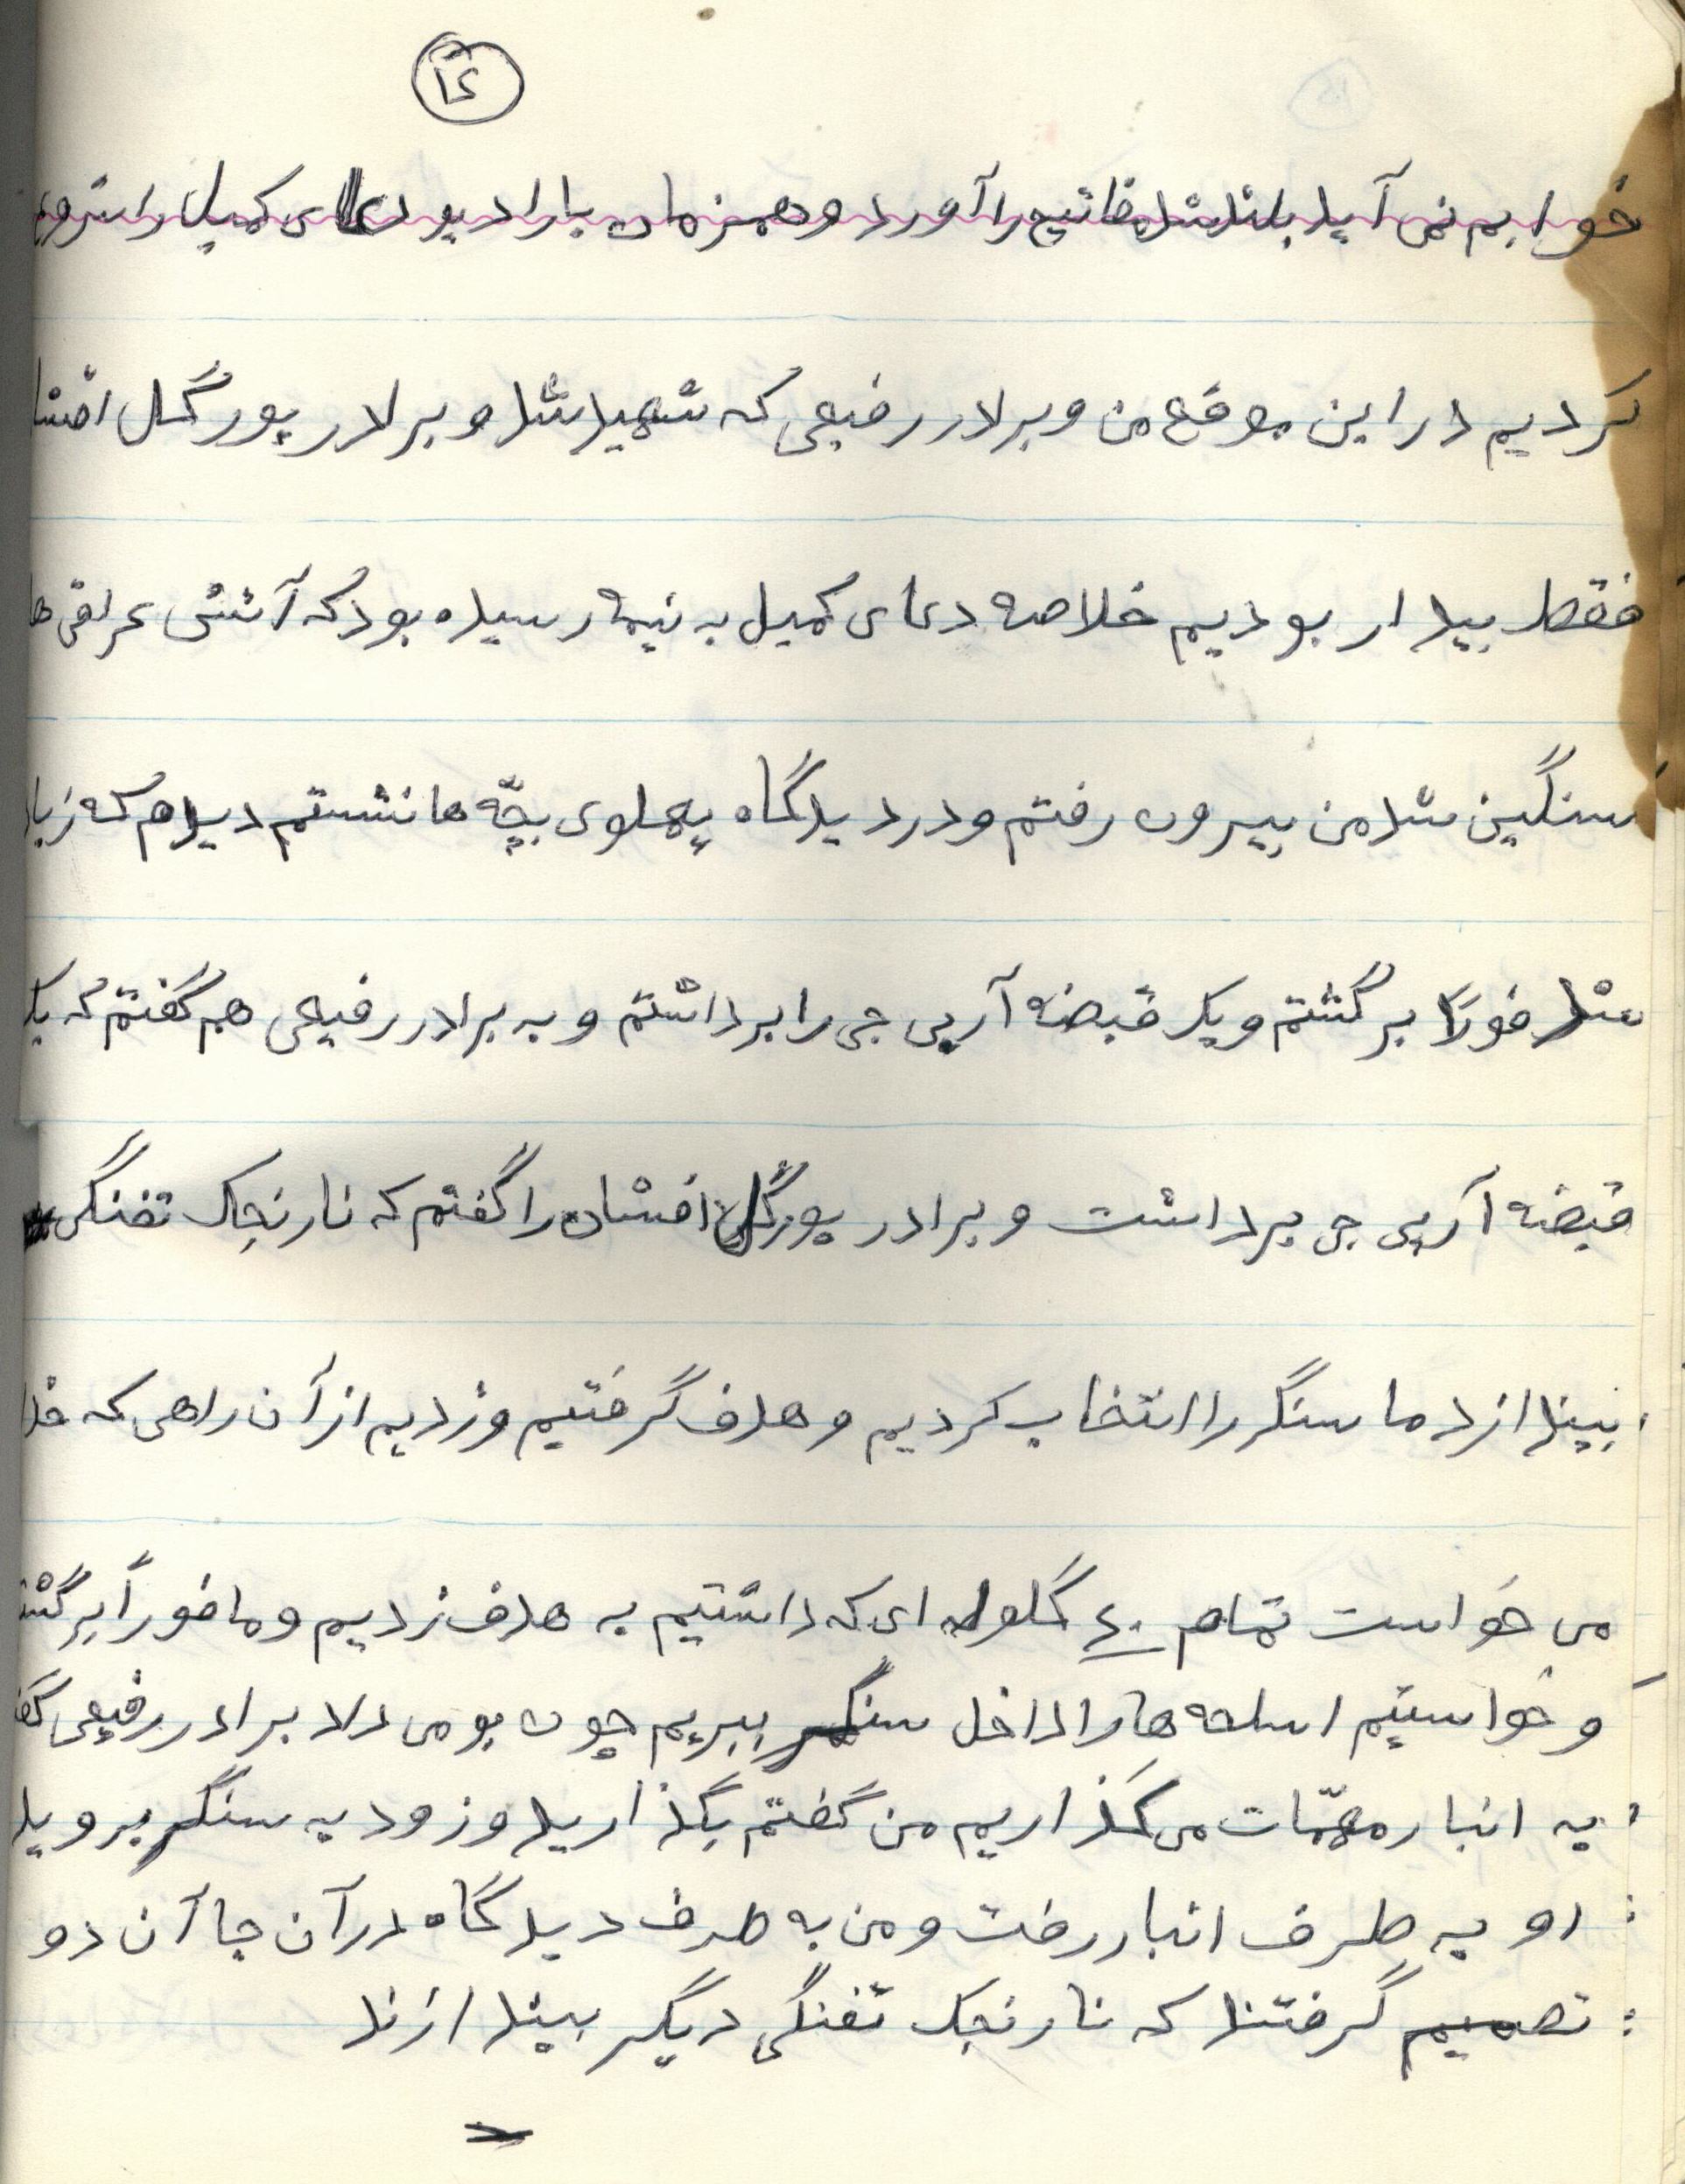 ۱۶
خوابم نمی آید بلند شد مفاتیح را آورد و همزمان با رادیو دعای کمیل را شروع
کردیم در این موقع من و برادر رفیعی که شهید شد و برادر پورگل افشا
فقط بیدار بودیم خلاصه دعای کمیل به نیمه رسیده بود که آتش عراقی ها
سنگین شد من بیرون رفتم و در دیدگاه پهلوی بچّه ها نشستم دیدم که زیاد
شد فوراً برگشتم و یک قبضه آرپی جی را برداشتم و به برادر رفیعی هم گفتم که یک
قبضه آرپی جی برداشت و برادر پورگل افشان را گفتم که نارنجک تفنگی
بیندازد ما سنگر را انتخاب کردیم و هدف گرفتیم و زدیم از آن راهی که خدا
می خواست تمام ۴۰ گلوله ای که داشتیم به هدف زدیم و ما فوراً برگشت
و خواستیم اسلحه ها را داخل سنگر ببریم چون بو می داد برادر رفیعی گف
به انبار مهمّات می گذاریم من گفتم بگذارید و زود به سنگر بروید
او به طرف انبار رفت و من به طرف دیدگاه در آن جا آن دو
تصمیم گرفتند که نارنجک تفنگی دیگر بیندازند